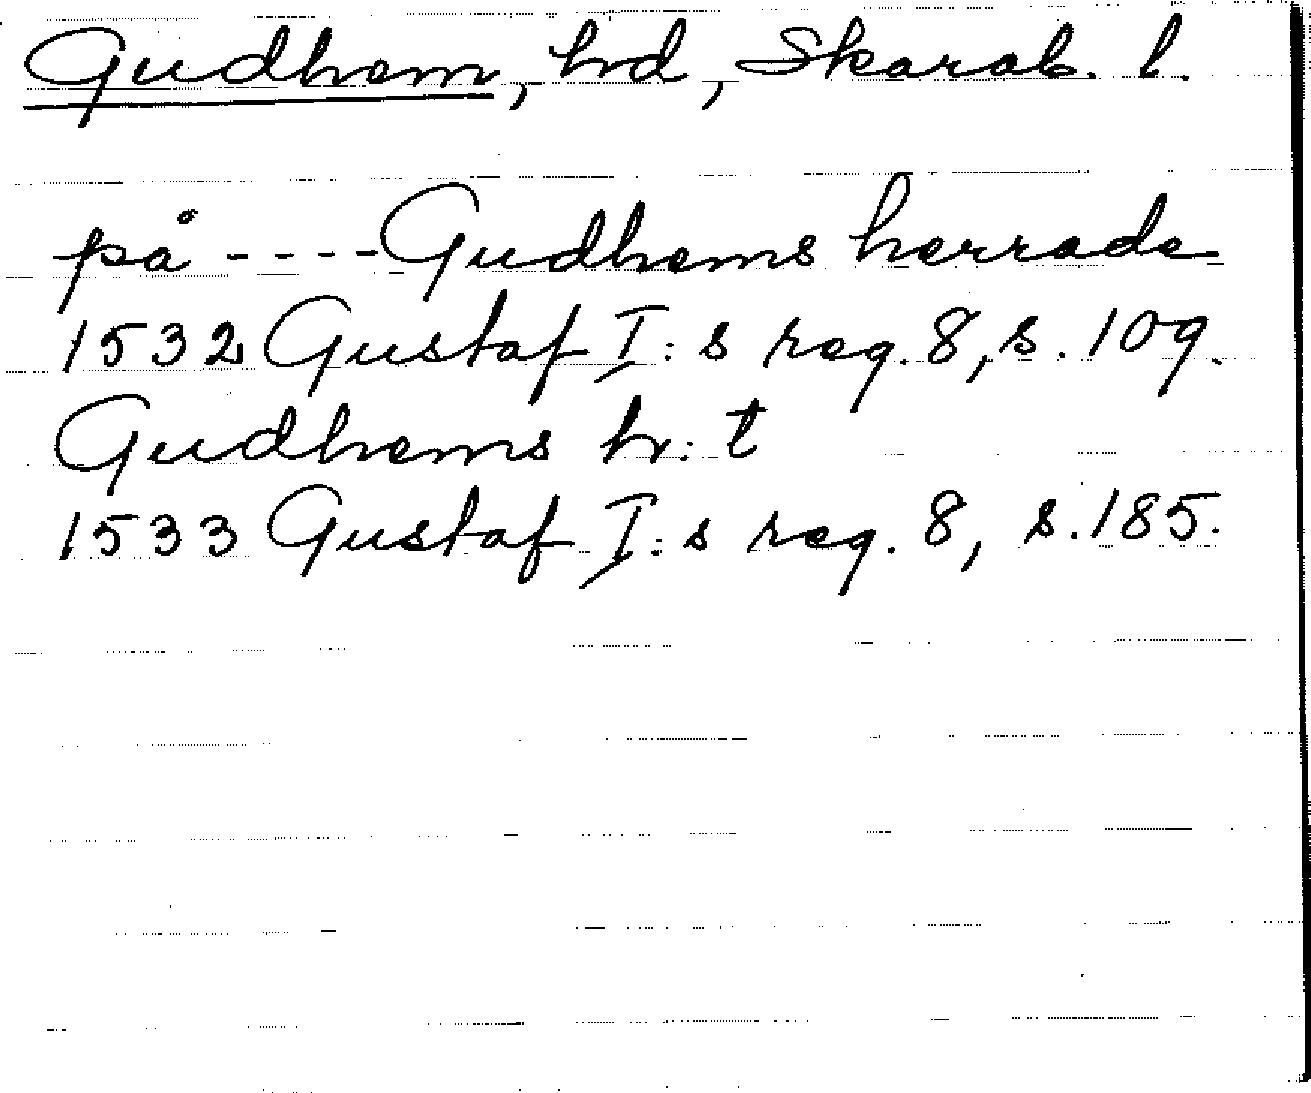 Gudhem, hd, Skarab. l.
på ----Gudhems herrade
1532 Gustaf I:s reg. 8, s. 109.
Gudhems hr:t
1533 Gustaf I:s reg. 8, s. 185.